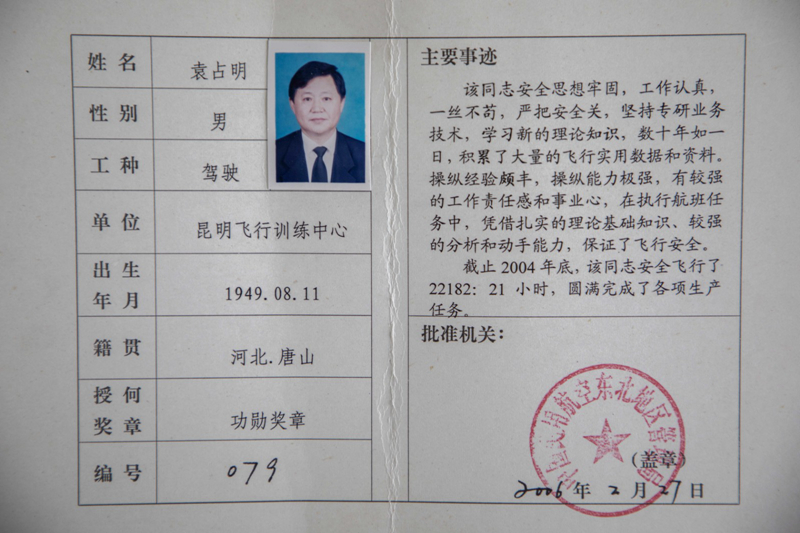 姓名 袁占明
性别 男
工种 驾驶
单位 昆明飞行训练中心
出生年月 1949.08.11
籍贯 河北.唐山
授何奖章 功勋奖章
编号 079
主要事迹
该同志安全思想牢固，工作认真，
一丝不苟，严把安全关，坚持专研业务
技术，学习新的理论知识，数十年如一
日，积累了大量的飞行实用数据和资料。
操纵经验颇丰，操纵能力极强，有较强
的工作责任感和事业心，在执行航班任
务中，凭借扎实的理论基础知识、较强
的分析和动手能力，保证了飞行安全。
截止 2004 年底，该同志安全飞行了
22182：21 小时，圆满完成了各项生产
任务。
批准机关：
中国民用航空东北地区管理局
（盖章）
2006年 2 月 27日